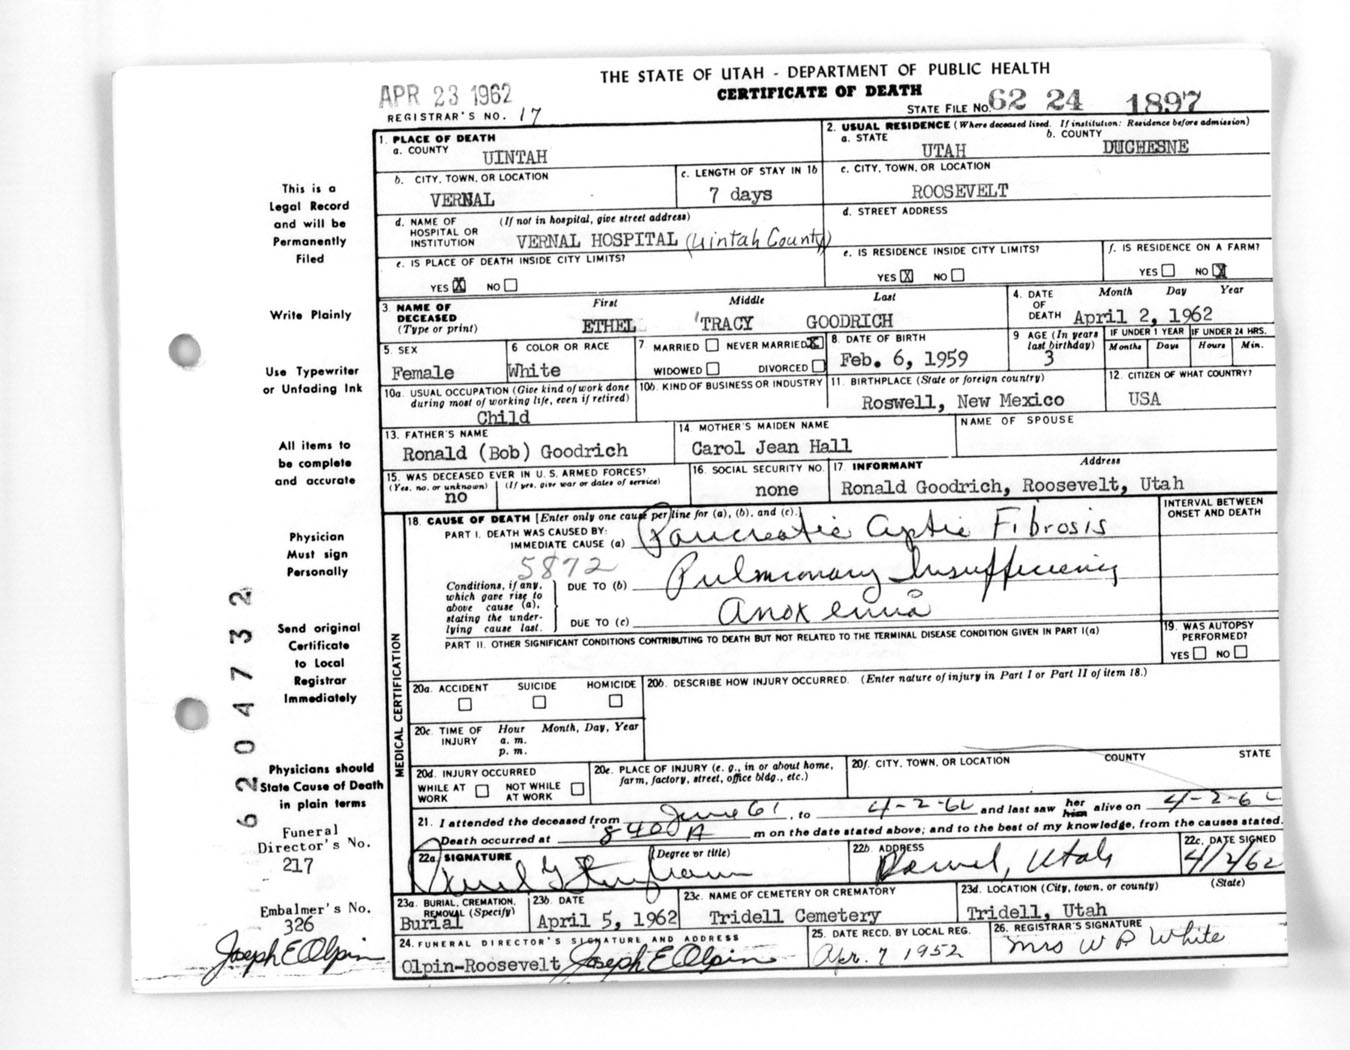 THE STATE OF UTAH - DEPARTMENT OF PUBLIC HEALTH
CERTIFICATE OF DEATH
APR 23 1962
REGISTRAR'S NO. 17
STATE FILE NO. 62 24 1897
1. PLACE OF DEATH
a. COUNTY
UINTAH
2. USUAL RESIDENCE (Where deceased lived. If institution: Residence before admission)
a. STATE b. COUNTY
UTAH DUCHESNE
b. CITY, TOWN, OR LOCATION
VERNAL
c. LENGTH OF STAY IN 1b
7 days
c. CITY, TOWN, OR LOCATION
ROOSEVELT
d. NAME OF HOSPITAL OR INSTITUTION (If not in hospital, give street address)
VERNAL HOSPITAL (Uintah County)
d. STREET ADDRESS
e. IS PLACE OF DEATH INSIDE CITY LIMITS?
YES X NO
e. IS RESIDENCE INSIDE CITY LIMITS?
YES X NO
f. IS RESIDENCE ON A FARM?
YES NO X
3. NAME OF DECEASED (Type or print)
First Middle Last
ETHEL TRACY GOODRICH
4. DATE OF DEATH
Month Day Year
April 2, 1962
5. SEX
Female
6 COLOR OR RACE
White
7 MARRIED NEVER MARRIED X
WIDOWED DIVORCED
8. DATE OF BIRTH
Feb. 6, 1959
9 AGE (In years last birthday)
3
IF UNDER 1 YEAR
Months Days
IF UNDER 24 HRS.
Hours Min.
10a. USUAL OCCUPATION (Give kind of work done during most of working life, even if retired)
Child
10b. KIND OF BUSINESS OR INDUSTRY
11. BIRTHPLACE (State or foreign country)
Roswell, New Mexico
12. CITIZEN OF WHAT COUNTRY?
USA
13. FATHER'S NAME
Ronald (Bob) Goodrich
14. MOTHER'S MAIDEN NAME
Carol Jean Hall
NAME OF SPOUSE
15. WAS DECEASED EVER IN U. S. ARMED FORCES?
(Yes, no, or unknown) (If yes, give war or dates of service)
no
16. SOCIAL SECURITY NO.
none
17. INFORMANT Address
Ronald Goodrich, Roosevelt, Utah
18. CAUSE OF DEATH [Enter only one cause per line for (a), (b), and (c).]
INTERVAL BETWEEN ONSET AND DEATH
PART I. DEATH WAS CAUSED BY:
IMMEDIATE CAUSE (a) Pancreatic Cystic Fibrosis
5872
Conditions, if any, which gave rise to above cause (a), stating the underlying cause last.
DUE TO (b) Pulmonary Insufficiency
DUE TO (c) Anoxemia
PART II. OTHER SIGNIFICANT CONDITIONS CONTRIBUTING TO DEATH BUT NOT RELATED TO THE TERMINAL DISEASE CONDITION GIVEN IN PART I(a)
19. WAS AUTOPSY PERFORMED?
YES NO
MEDICAL CERTIFICATION
20a. ACCIDENT SUICIDE HOMICIDE
20b. DESCRIBE HOW INJURY OCCURRED. (Enter nature of injury in Part I or Part II of item 18.)
20c. TIME OF INJURY
Hour Month, Day, Year
a. m.
p. m.
20d. INJURY OCCURRED
WHILE AT WORK NOT WHILE AT WORK
20e. PLACE OF INJURY (e. g., in or about home, farm, factory, street, office bldg., etc.)
20f. CITY, TOWN, OR LOCATION COUNTY STATE
21. I attended the deceased from June 61, to 4-2-62 and last saw her him alive on 4-2-62
Death occurred at 840 A m on the date stated above; and to the best of my knowledge, from the causes stated.
22a. SIGNATURE (Degree or title)
22b. ADDRESS
Vernal, Utah
22c. DATE SIGNED
4/2/62
23a. BURIAL, CREMATION, REMOVAL (Specify)
Burial
23b. DATE
April 5, 1962
23c. NAME OF CEMETERY OR CREMATORY
Tridell Cemetery
23d. LOCATION (City, town, or county) (State)
Tridell, Utah
24. FUNERAL DIRECTOR'S SIGNATURE AND ADDRESS
Olpin-Roosevelt Joseph E Olpin
25. DATE RECD. BY LOCAL REG.
Apr. 7 1952
26. REGISTRAR'S SIGNATURE
Mrs W P White
This is a
Legal Record
and will be
Permanently
Filed
Write Plainly
Use Typewriter
or Unfading Ink
All items to
be complete
and accurate
Physician
Must sign
Personally
Send original
Certificate
to Local
Registrar
Immediately
Physicians should
State Cause of Death
in plain terms
Funeral
Director's No.
217
Embalmer's No.
326
Joseph E Olpin
6204732